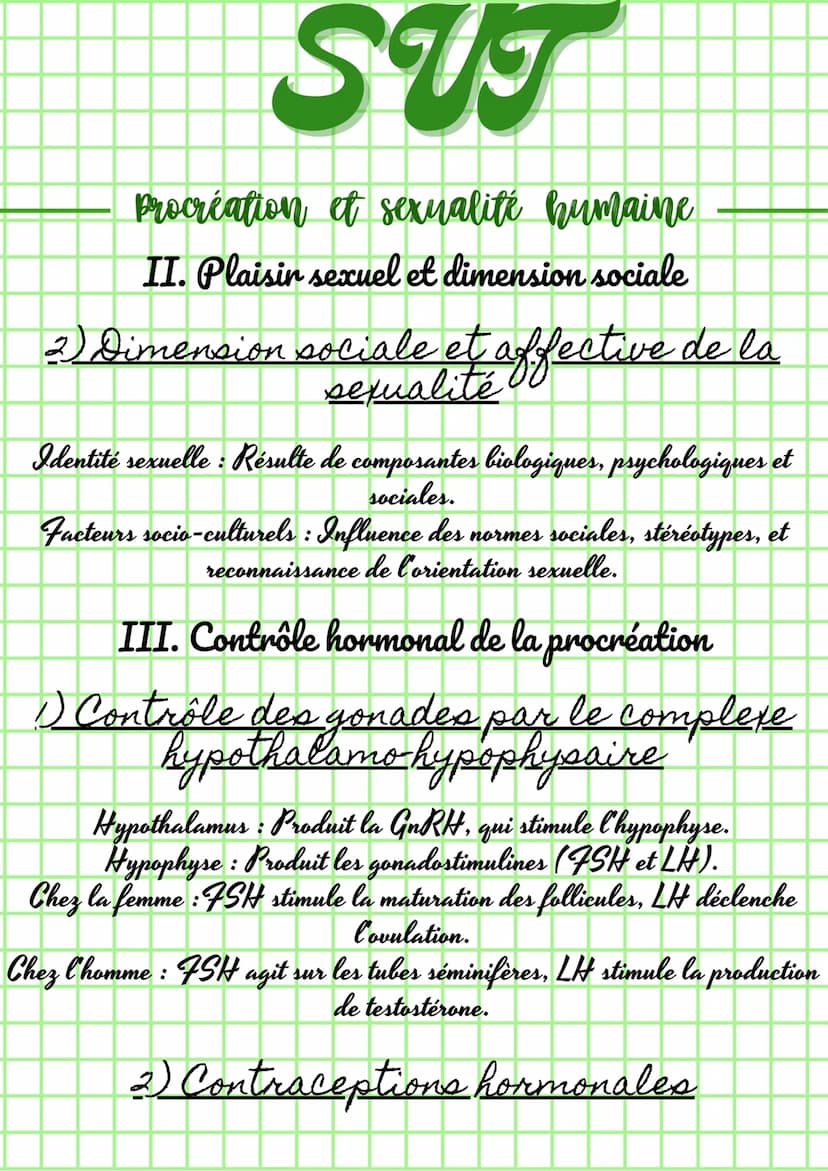 SUT
Procréation et sexualité humaine
II. Plaisir sexuel et dimension sociale
2) Dimension sociale et affective de la
sexualité
Identité sexuelle : Résulte de composantes biologiques, psychologiques et
sociales.
Facteurs socio-culturels : Influence des normes sociales, stéréotypes, et
reconnaissance de l'orientation sexuelle.
III. Contrôle hormonal de la procréation
1) Contrôle des gonades par le complexe
hypothalamo-hypophysaire
Hypothalamus : Produit la GnRH, qui stimule l'hypophyse.
Hypophyse : Produit les gonadostimulines (FSH et LH).
Chez la femme : FSH stimule la maturation des follicules, LH déclenche
l'ovulation.
Chez l'homme : FSH agit sur les tubes séminifères, LH stimule la production
de testostérone.
2) Contraceptions hormonales